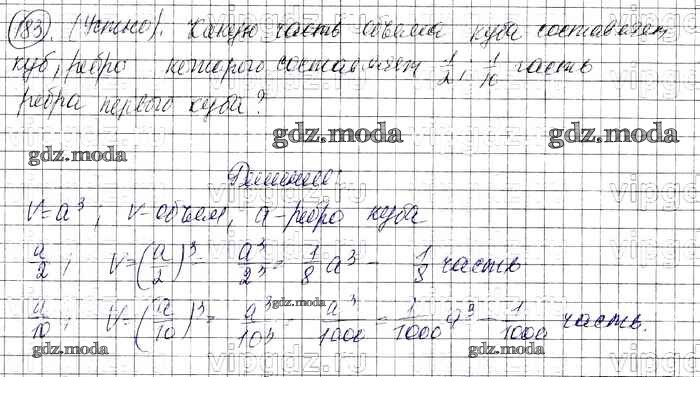 183. (Устно). Какую часть объема куба составляет
куб, ребро которого составляет 1/2, 1/10 часть
ребра первого куба?
gdz.moda gdz.moda
gdz.moda
Решение:
vipgdz.ru
V=a³; V-объем, a-ребро куба
a/2; V=(a/2)³= a³/2³= 1/8 a³ - 1/8 часть
gdz.moda
a/10; V=(a/10)³= a³/10³ = a³/1000 = 1/1000 a³ - 1/1000 часть.
gdz.moda gdz.moda
vipgdz.ru